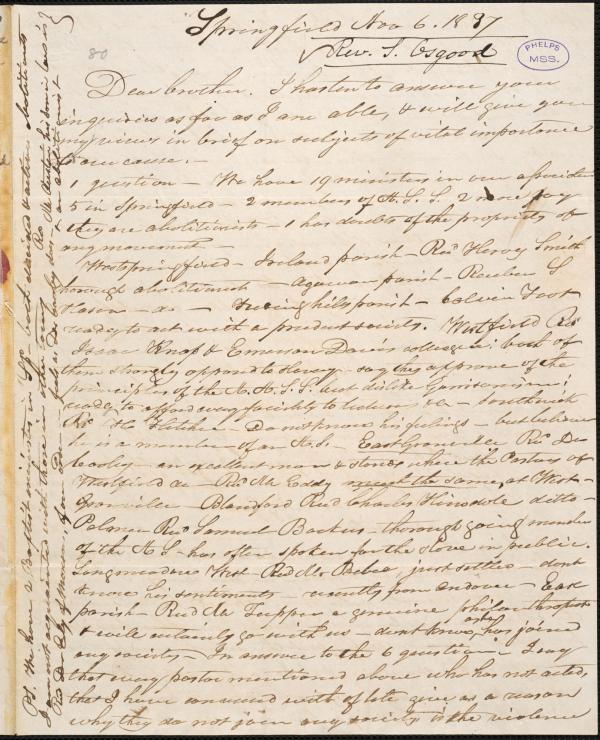 Springfield Nov 6. 1837
Rev. S. Osgood
PHELPS
MSS.
80
Dear brother. I hasten to answer your
inquiries as far as I am able, & will give you
my views in brief on subjects of vital importance
to our cause. -
1 question - We have 19 ministers in our association
5 in Springfield - 2 members of A. S. S. 2 more say
they are abolitionists - 1 has doubts of the propriety of
any movement -
Westspringfield - Ireland parish - Revd Hervey Smith
thorough abolitionist - agawam parish - Reuben S
Hazen - do - Feeding hills parish - Calvin Foot
ready to act with a prudent society. Westfield Rev
Isaac Knapp & Emerson Davis colleague: both of
them strongly opposed to slavery - say they approve of the
principles of the A. A. S. S. but dislike Garrisonism!
ready to afford every facility to lecturers, &c - Southwick
Rev Mr Fletcher - Do not know his feelings - but believe
he is a member of an A. S. - East Granville Rev Dr
Cooley - an excellent man & stands where the Pastors of
Westfield do - Rev Mr Eddy much the same, at West-
Granville - Blandford Revd Charles Hinsdale ditto -
Palmer Revd Samuel Backus - thorough going member
of the A S - has often spoken for the slave in public.
Longmeadow West - Revd Mr Beebee, just settled - dont
know his sentiments - recently from andover - East
parish - Revd Mr Tupper a genuine philanthropist
& will certainly go with us - dont know, as he has joined
any society - In answer to the 6 question - I say
that every pastor mentioned above who has not acted,
that I have conversed with of late give as a reason
why they do not join any society is the violence
PS. We have 2 Baptist ministers in Sp. both decided & active abolitionists
I am not acquainted with those in other
Rev Dr Ely of Monson